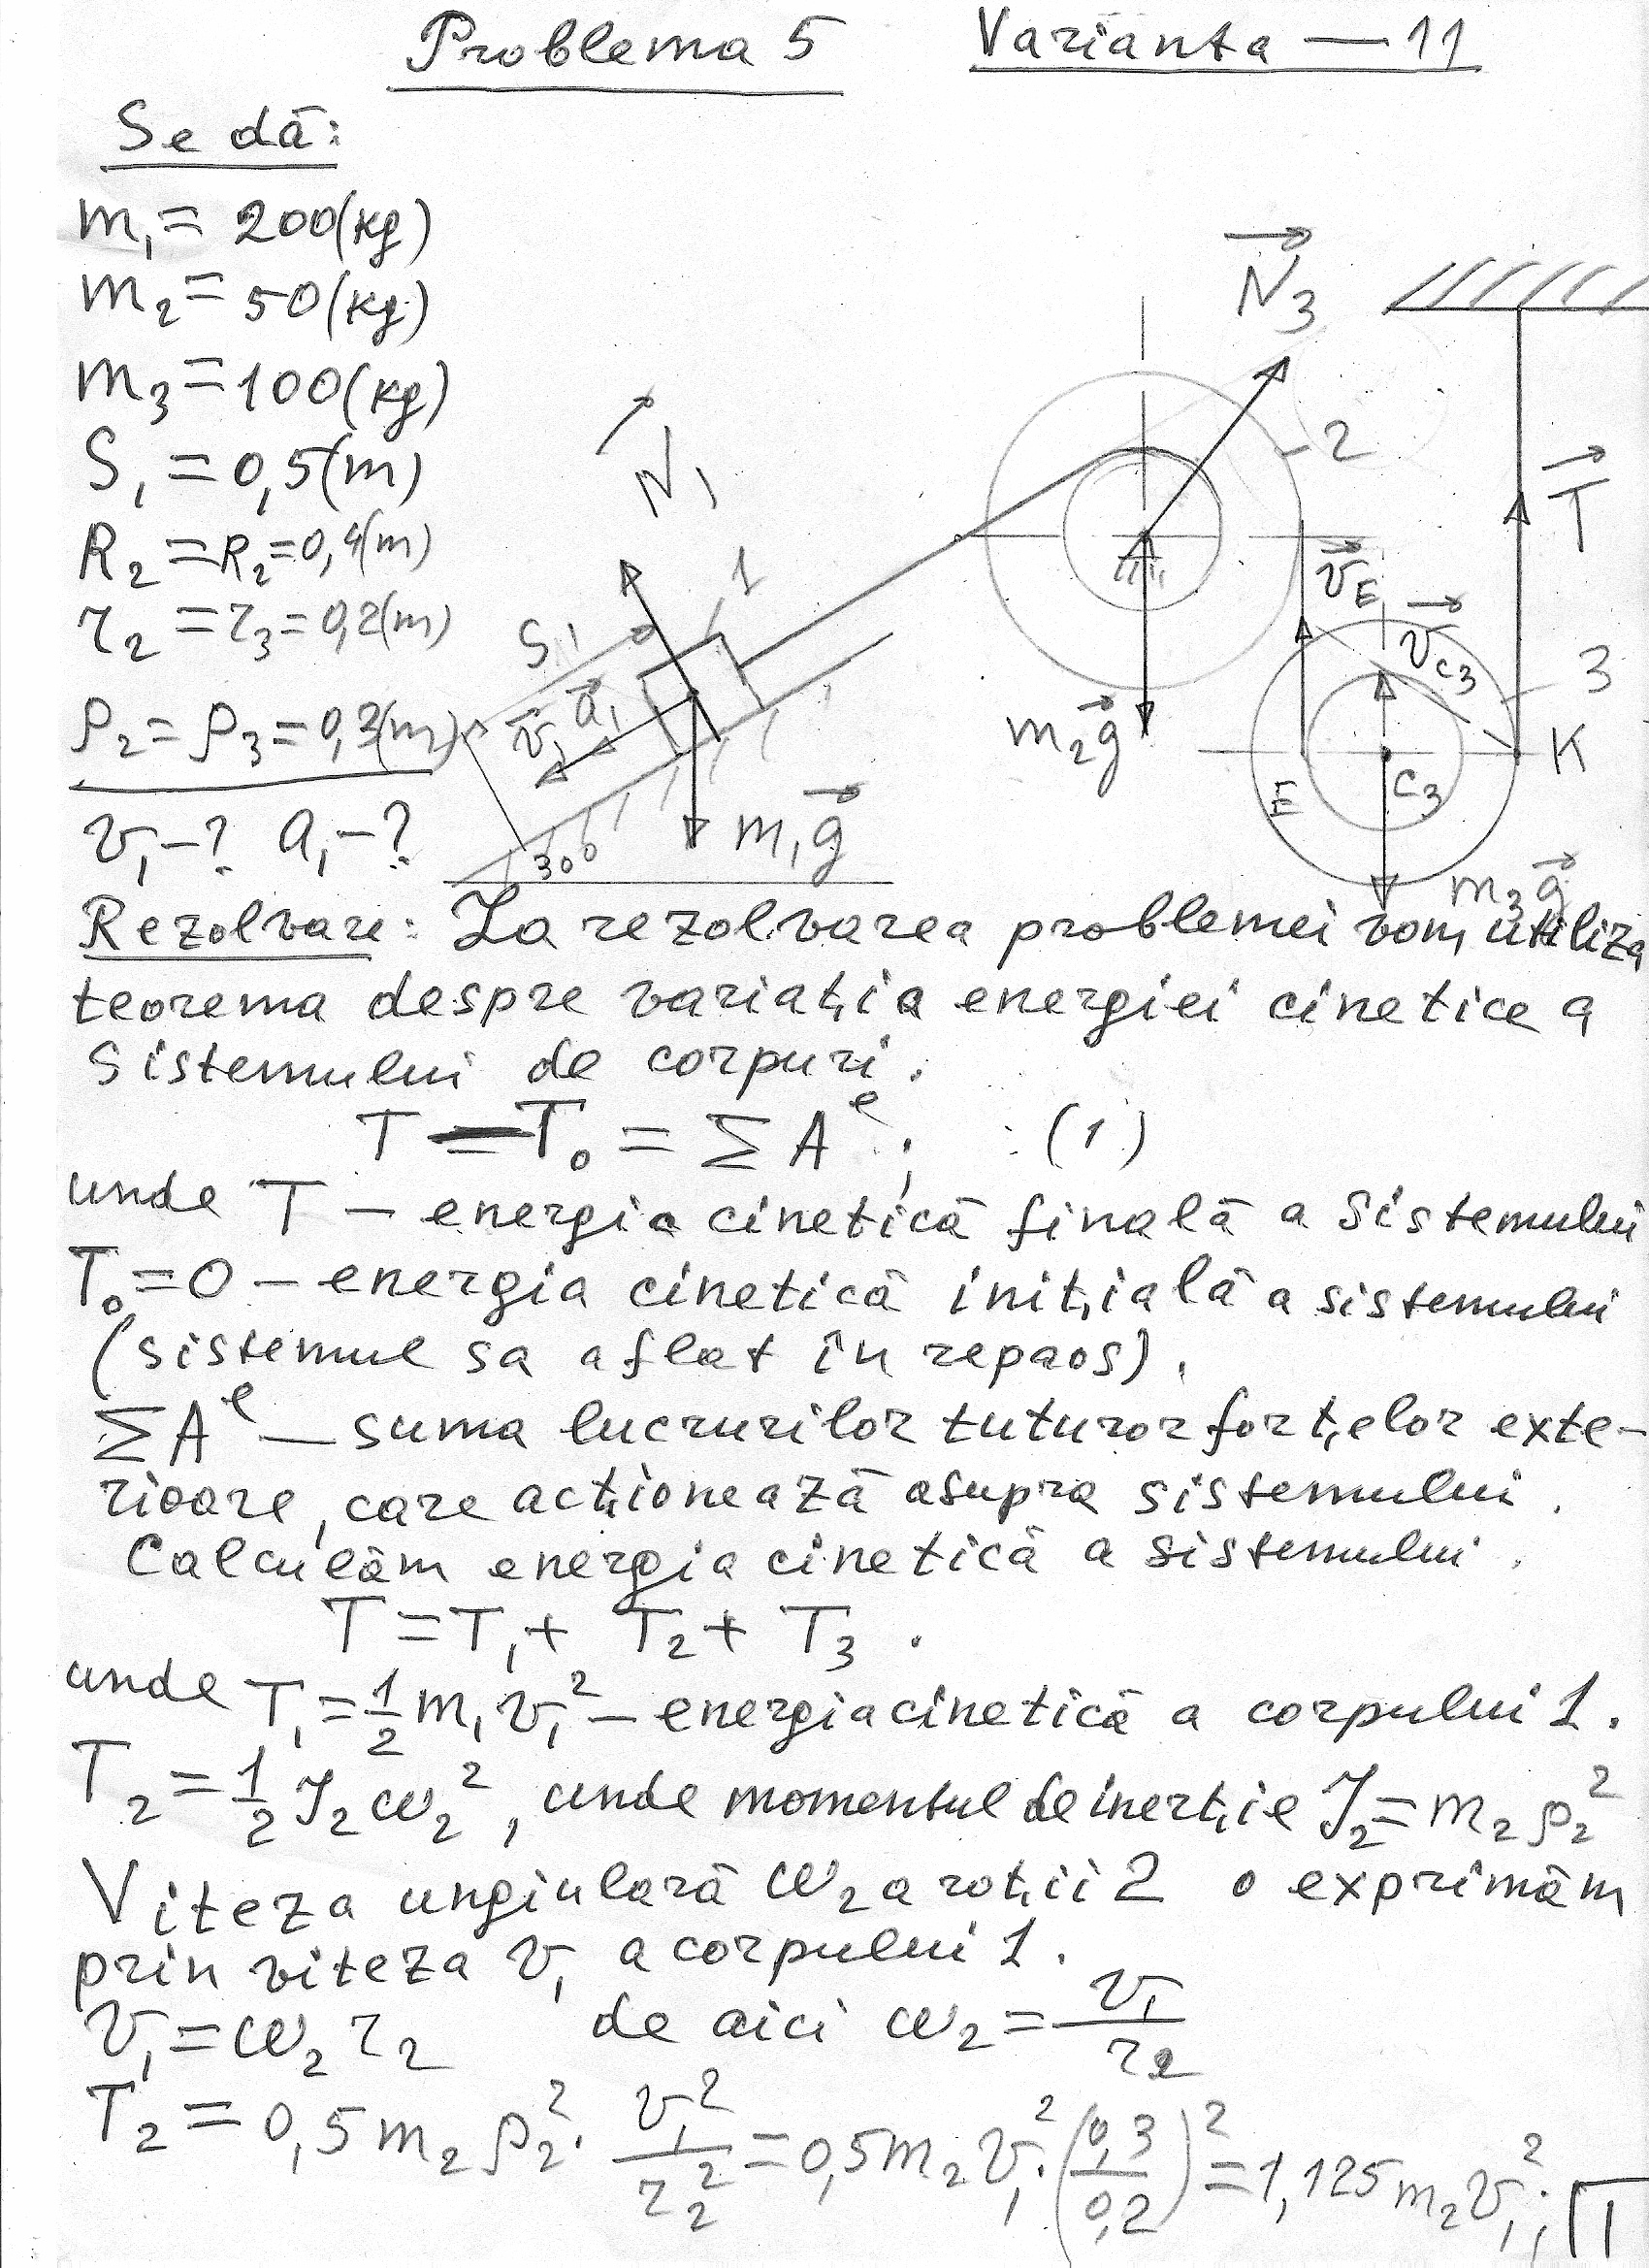 Problema 5 Varianta — 11
Se dă:
m₁ = 200(kg)
m₂ = 50(kg)
m₃ = 100(kg)
S₁ = 0,5(m)
R₂ = R₂ = 0,4(m)
r₂ = r₃ = 0,2(m)
ρ₂ = ρ₃ = 0,3(m)
v₁ - ? a₁ - ?
N₃
N₁
1
2
T
S₁
v₁ a₁
v_E
v_C₃
3
K
E
C₃
m₂g
m₁g
30°
m₃g
Rezolvare: La rezolvarea problemei vom utiliza
teorema despre variația energiei cinetice a
sistemului de corpuri.
T — T₀ = ΣAᵉ; (1)
unde T — energia cinetică finală a sistemului
T₀ = 0 — energia cinetică inițială a sistemului
(sistemul sa aflat în repaos).
ΣAᵉ — suma lucrurilor tuturor forțelor exte-
rioare, care acționează asupra sistemului.
Calculăm energia cinetică a sistemului.
T = T₁ + T₂ + T₃.
unde T₁ = 1/2 m₁v₁² — energia cinetică a corpului 1.
T₂ = 1/2 J₂ω₂², unde momentul de inerție J₂ = m₂ρ₂²
Viteza ungiulară ω₂ a roții 2 o exprimăm
prin viteza v₁ a corpului 1.
v₁ = ω₂r₂ de aici ω₂ = v₁/r₂
T₂ = 0,5m₂ρ₂² · v₁²/r₂² = 0,5m₂v₁² · (0,3/0,2)² = 1,125m₂v₁²; 1